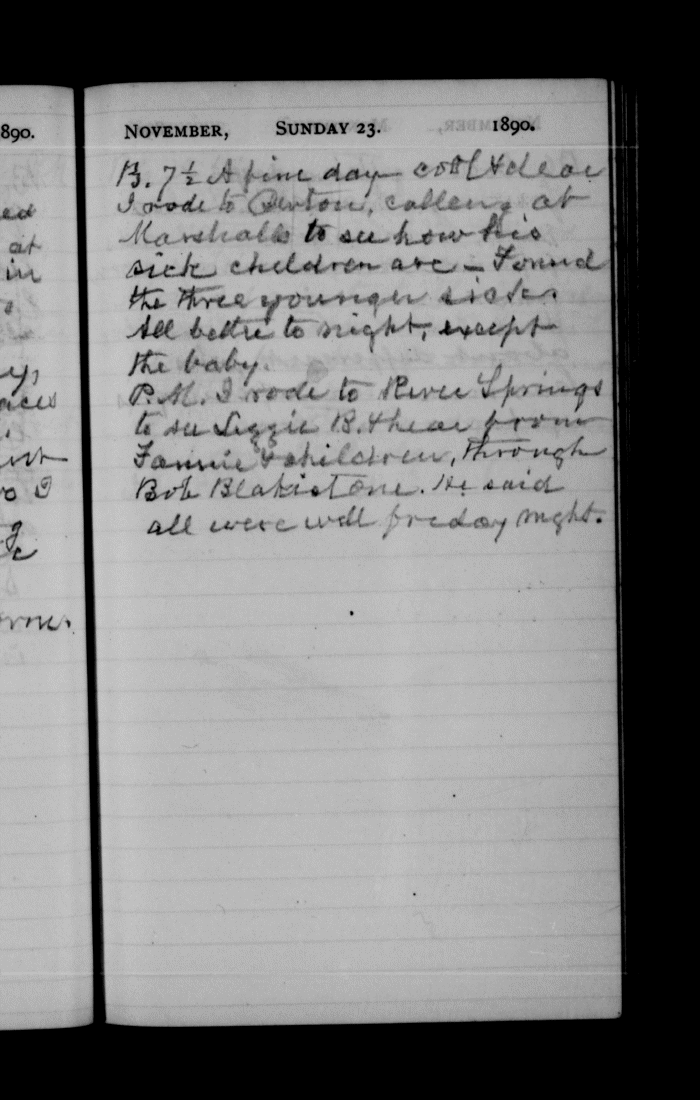 890.
ed
at
in
ey,
aces
I
NOVEMBER, SUNDAY 23. 1890.
B. 7½ A fine day cool & clear
I rode to Oerton, calleng at
Marshalls to see how his
sick children are – Found
the three younger sicker
All better to night, except
the baby.
P.M. I rode to River Springs
to see Lizzie B. & hear from
Fannie & children, through
Bob Blakistone. He said
all were well friday night.